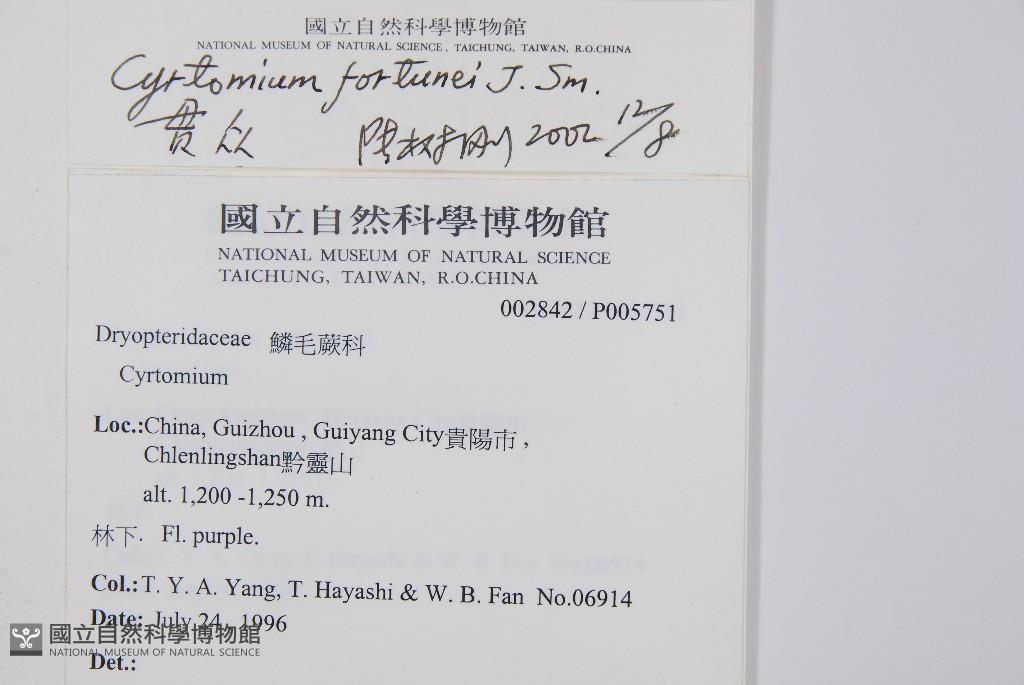 國立自然科學博物館
NATIONAL MUSEUM OF NATURAL SCIENCE, TAICHUNG, TAIWAN, R.O.CHINA
Cyrtomium fortunei J. Sm.
贯众 2002 12/8
國立自然科學博物館
NATIONAL MUSEUM OF NATURAL SCIENCE
TAICHUNG, TAIWAN, R.O.CHINA
002842 / P005751
Dryopteridaceae 鱗毛蕨科
Cyrtomium
Loc.:China, Guizhou , Guiyang City貴陽市 ,
Chlenlingshan黔靈山
alt. 1,200 -1,250 m.
林下. Fl. purple.
Col.:T. Y. A. Yang, T. Hayashi & W. B. Fan No.06914
Date: July 24, 1996
國立自然科學博物館
NATIONAL MUSEUM OF NATURAL SCIENCE
Det.: